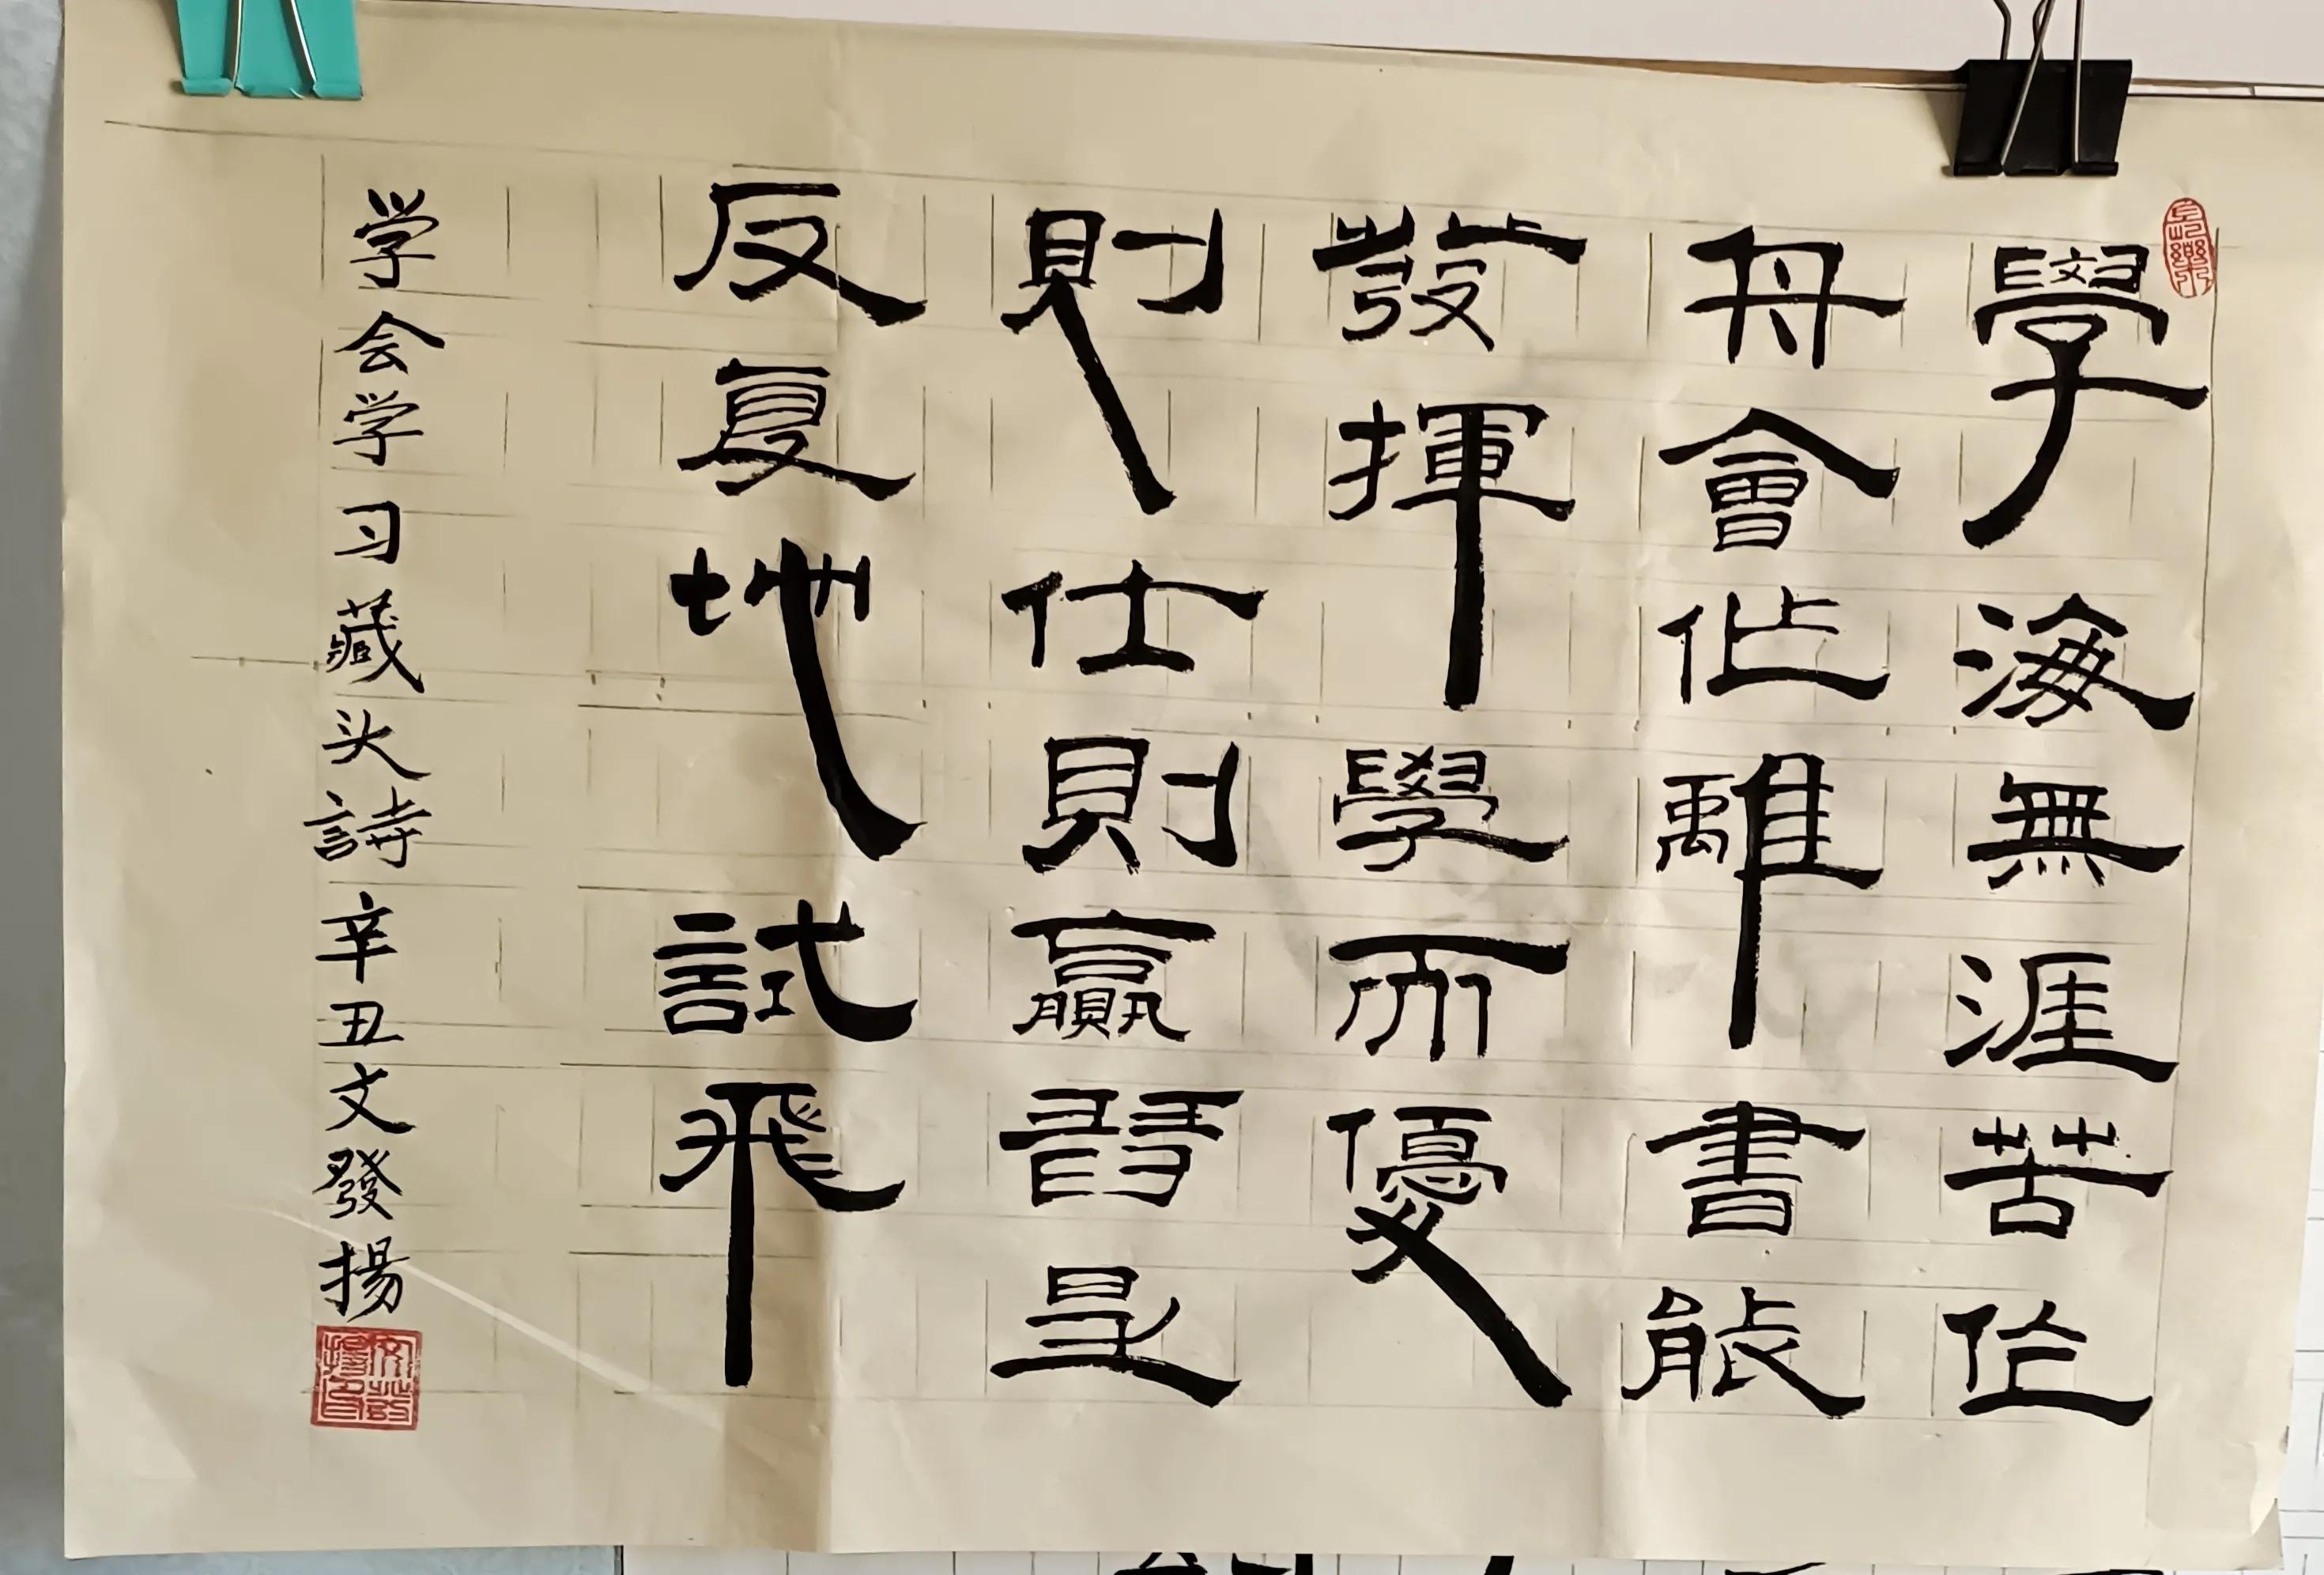 學海無涯苦作
舟會作離書能
發揮學而優
則仕則贏習是
反复地試飛
学会学习藏头詩辛丑文發揚
文發揚印